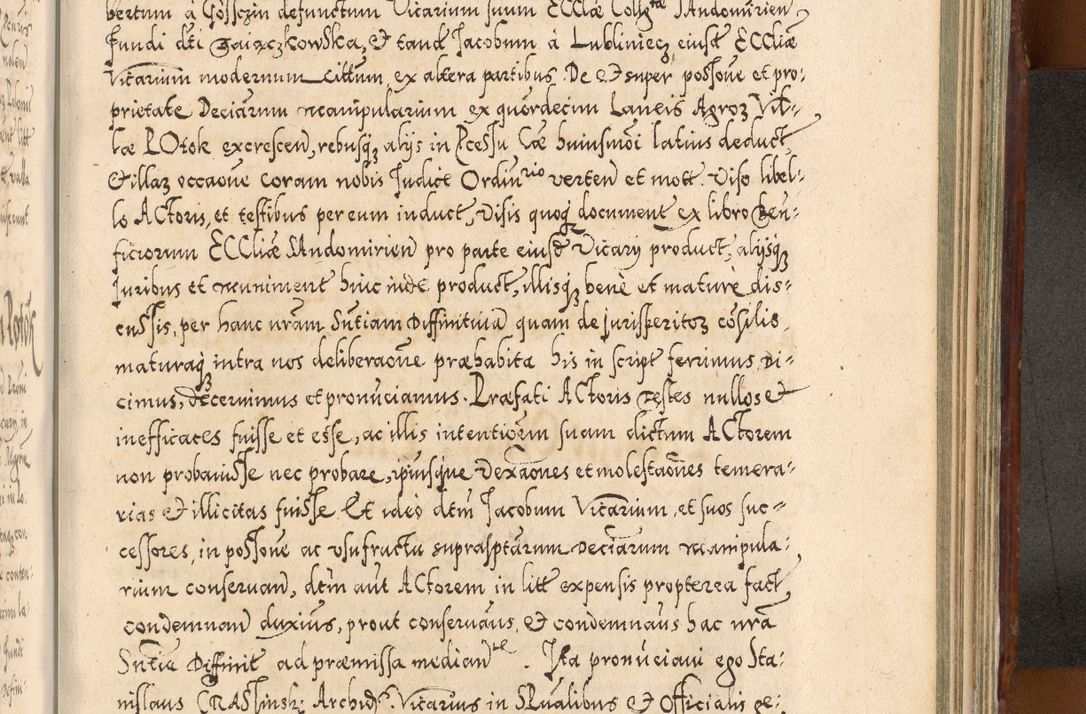 bertum à Gosczin defunctum Vicarium suum ECCliæ Collg tæ SAndomirien
fundi dti Zaiączkowska, et tand Jacobum à Lubliniecz eiusd ECCliæ
Vicarium modernum citium ex altera partibus. De et super possione et pro-
prietate Deciarum manipularium ex quordecim Laneis Agroz Vil-
læ POtok excrescen, rebusqz alijs in Pcessu Cæ huiusmoi latius deduct,
et illaz occaone coram nobis Judice Ordin rio verten et mott. Viso libel-
lo ACtoris, et testibus per eum induct, Visis quoqz document ex libro Ben-
ficiorum ECCliæ SAndomirien pro parte eiusd Vicary product, alijsqz
Juribus et muniment hinc inde product, illisqz benè et maturè dis-
cussis, per hanc nram Sntiam Diffinitiua quam de jurisperitoz cosilis
maturaqz intra nos deliberaone præhabita his in script ferrimus Di-
cimus, decernimus et pronuciamus. Præfati ACtoris Testes nullos et
inefficaces fuisse et esse, ac illis intentioem suam dictum ACtorem
non probauisse nec probare, ipsiusque Vexaones et molestaones temera-
rias et illicitas fuisse. Et ideo dtm Jacobum Vicarium, et suos suc-
cessores, in possione ac vsufructu suprasptarum Deciarum manipula-
rium conseruan, dtm aut ACtorem in litt expensis propterea fact
condemnan duxius, prout conseruaus, et condemnaus hac nra
Sntia Diffinit ad præmissa median te. Ita pronuciaui ego Sta-
nislaus CRASsinski Archid s Vicarius in SPualibus et Officialis ge-